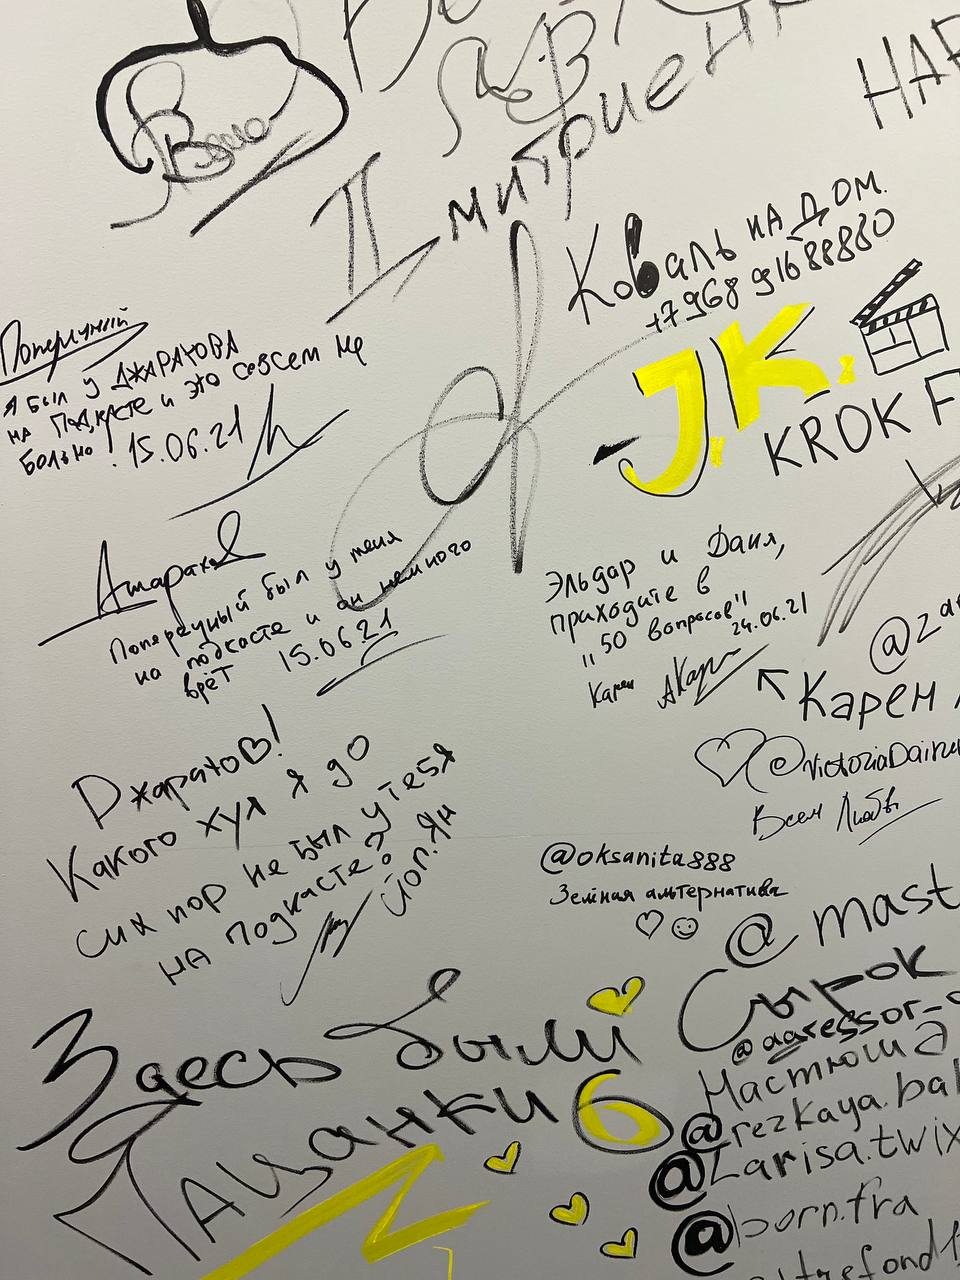 Дмитриенк
НАР
Коваль на дом.
+7 968 916 88880
J.K.
KROK F
Поперечный
Я был у Джарахова
на подкасте и это совсем не
больно! 15.06.21
Джарахов
Поперечный был у меня
на подкасте и он немного
врёт 15.06.21
Эльдар и Даня,
приходите в
"50 вопросов"!
24.06.21
Карен
@za
Карен
@VictoriaDain
Всем Любви
Джарахов!
Какого хуя я до
сих пор не был у тебя
на подкасте?
@oksanita888
Зелёная альтернатива
@mast
Сырок
@agressor_
Мастюша
@rezkaya.bal
@Larisa.twix
@born.fra
Здесь были
Пацанки 6